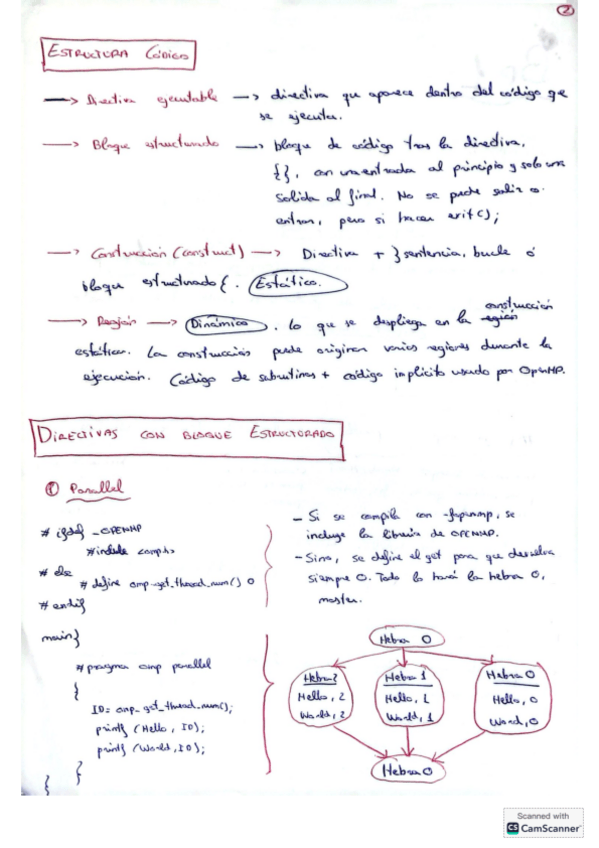 2
ESTRUCTURA CÓDIGO
→ Directiva ejecutable → directiva que aparece dentro del código que
se ejecuta.
→ Bloque estructurado → bloque de código tras la directiva,
{}, con una entrada al principio y solo una
salida al final. No se puede salir o
entrar, pero si hacer exit();
→ Construcción (construct) → Directiva + } sentencia, bucle ó
bloque estructurado {. Estático.
→ Región → Dinámico. Lo que se despliega en la región construcción
estática. La construcción puede originar varias regiones durante la
ejecución. Código de subrutinas + código implícito usado por OpenMP.
DIRECTIVAS CON BLOQUE ESTRUCTURADO
① Parallel
# ifdef _OPENMP
#include <omp.h>
# else
# define omp_get_thread_num() 0
# endif
- Si se compila con -fopenmp, se
incluye la librería de OPENMP.
- Sino, se define el get para que devuelva
siempre 0. Todo lo hará la hebra 0,
master.
main}
#pragma omp parallel
{
ID= omp_get_thread_num();
printf (Hello, ID);
printf (World, ID);
}
{
Hebra 0
Hebra 2
Hello, 2
World, 2
Hebra 1
Hello, 1
World, 1
Hebra 0
Hello, 0
World, 0
Hebra 0
Scanned with
CS CamScanner